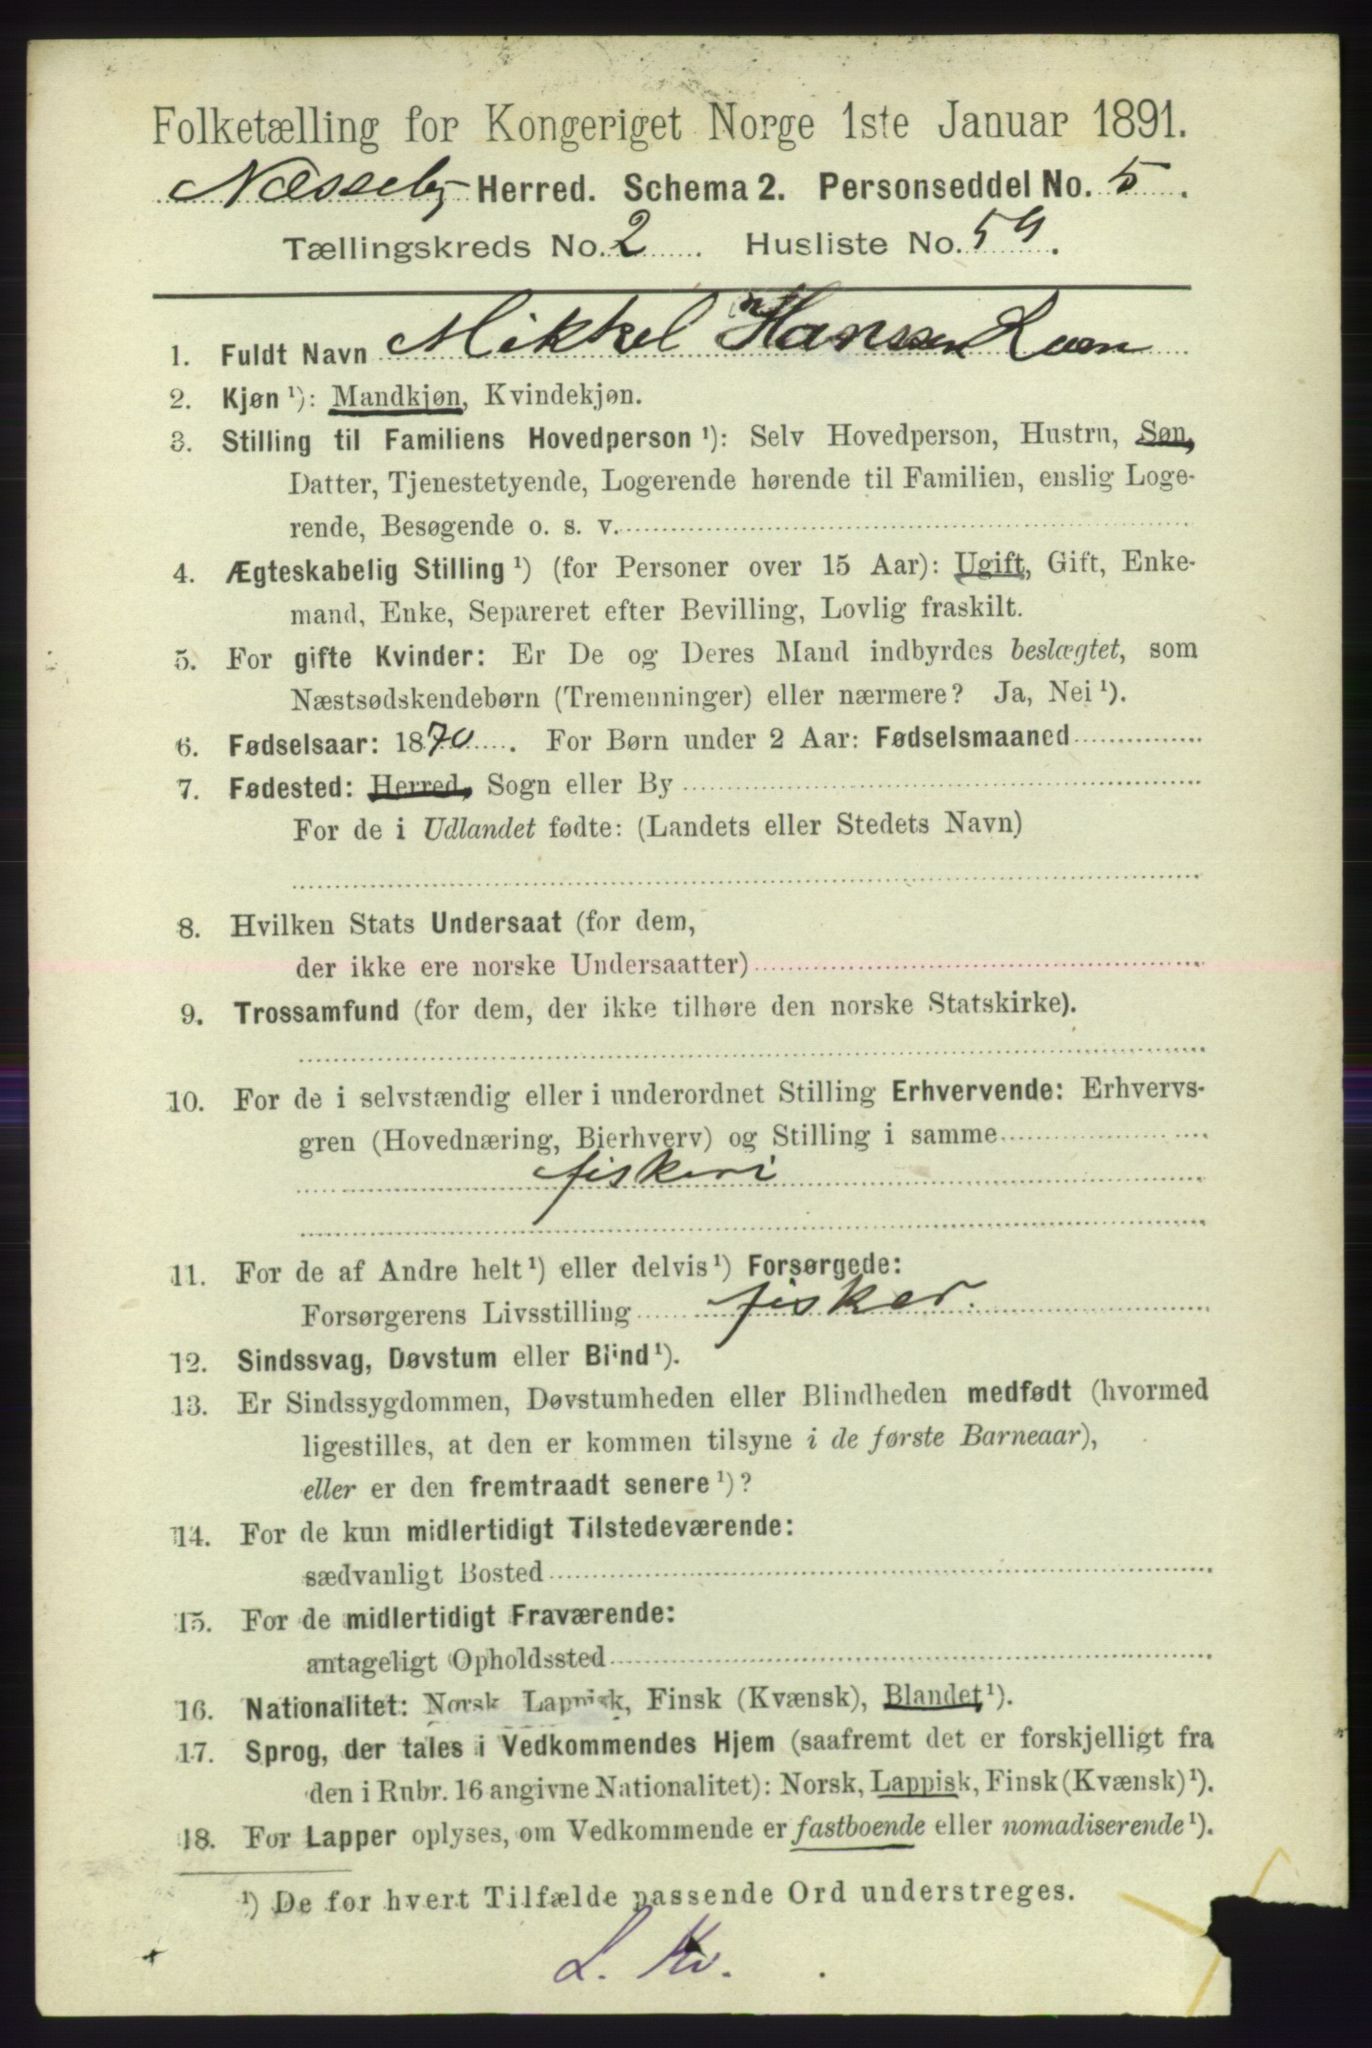 Folketælling for Kongeriget Norge 1ste Januar 1891.
Næsseby Herred. Schema 2. Personseddel No. 5.
Tællingskreds No. 2. Husliste No. 59.
1. Fuldt Navn Mikkel Hanssen
2. Kjøn ¹): Mandkjøn, Kvindekjøn.
3. Stilling til Familiens Hovedperson ¹): Selv Hovedperson, Hustru, Søn,
Datter, Tjenestetyende, Logerende hørende til Familien, enslig Loge-
rende, Besøgende o. s. v.
4. Ægteskabelig Stilling ¹) (for Personer over 15 Aar): Ugift, Gift, Enke-
mand, Enke, Separeret efter Bevilling, Lovlig fraskilt.
5. For gifte Kvinder: Er De og Deres Mand indbyrdes beslægtet, som
Næstsødskendebørn (Tremenninger) eller nærmere? Ja, Nei ¹).
6. Fødselsaar: 1870. For Børn under 2 Aar: Fødselsmaaned
7. Fødested: Herred, Sogn eller By
For de i Udlandet fødte: (Landets eller Stedets Navn)
8. Hvilken Stats Undersaat (for dem,
der ikke ere norske Undersaatter)
9. Trossamfund (for dem, der ikke tilhøre den norske Statskirke).
10. For de i selvstændig eller i underordnet Stilling Erhvervende: Erhvervs-
gren (Hovednæring, Bierhverv) og Stilling i samme
fiskeri
11. For de af Andre helt ¹) eller delvis ¹) Forsørgede:
Forsørgerens Livsstilling fisker.
12. Sindssvag, Døvstum eller Blind ¹).
13. Er Sindssygdommen, Døvstumheden eller Blindheden medfødt (hvormed
ligestilles, at den er kommen tilsyne i de første Barneaar),
eller er den fremtraadt senere ¹)?
14. For de kun midlertidigt Tilstedeværende:
sædvanligt Bosted
15. For de midlertidigt Fraværende:
antageligt Opholdssted
16. Nationalitet: Norsk Lappisk, Finsk (Kvænsk), Blandet ¹).
17. Sprog, der tales i Vedkommendes Hjem (saafremt det er forskjelligt fra
den i Rubr. 16 angivne Nationalitet): Norsk, Lappisk, Finsk (Kvænsk) ¹).
18. For Lapper oplyses, om Vedkommende er fastboende eller nomadiserende ¹).
¹) De for hvert Tilfælde passende Ord understreges.
L. Kv.